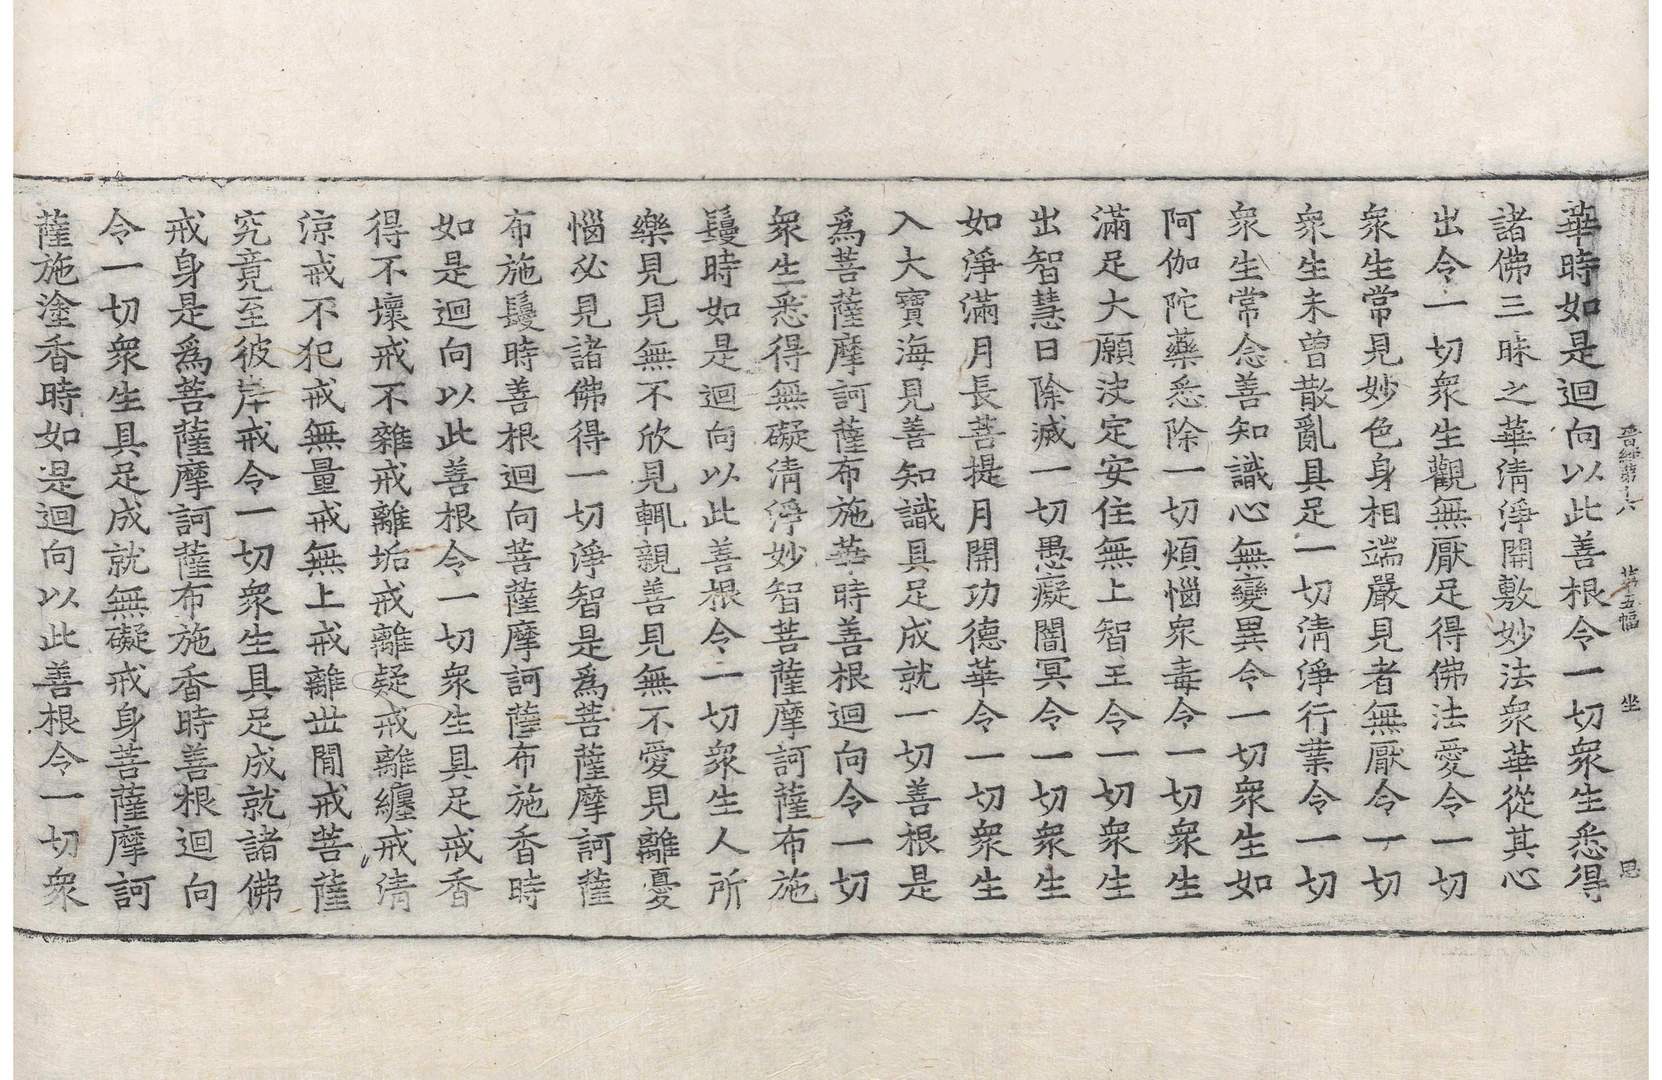 晉經第十六　第五幅　坐　恩
華時如是迴向以此善根令一切衆生悉得
諸佛三昧之華清淨開敷妙法衆華從其心
出令一切衆生觀無厭足得佛法愛令一切
衆生常見妙色身相端嚴見者無厭令一切
衆生未曾散亂具足一切清淨行業令一切
衆生常念善知識心無變異令一切衆生如
阿伽陀藥悉除一切煩惱衆毒令一切衆生
滿足大願決定安住無上智王令一切衆生
出智慧日除滅一切愚癡闇冥令一切衆生
如淨滿月長菩提月開功德華令一切衆生
入大寶海見善知識具足成就一切善根是
爲菩薩摩訶薩布施華時善根迴向令一切
衆生悉得無礙清淨妙智菩薩摩訶薩布施
鬘時如是迴向以此善根令一切衆生人所
樂見見無不欣見輒親善見無不愛見離憂
惱必見諸佛得一切淨智是爲菩薩摩訶薩
布施鬘時善根迴向菩薩摩訶薩布施香時
如是迴向以此善根令一切衆生具足戒香
得不壞戒不雜戒離垢戒離疑戒離纏戒清
涼戒不犯戒無量戒無上戒離世閒戒菩薩
究竟至彼岸戒令一切衆生具足成就諸佛
戒身是爲菩薩摩訶薩布施香時善根迴向
令一切衆生具足成就無礙戒身菩薩摩訶
薩施塗香時如是迴向以此善根令一切衆